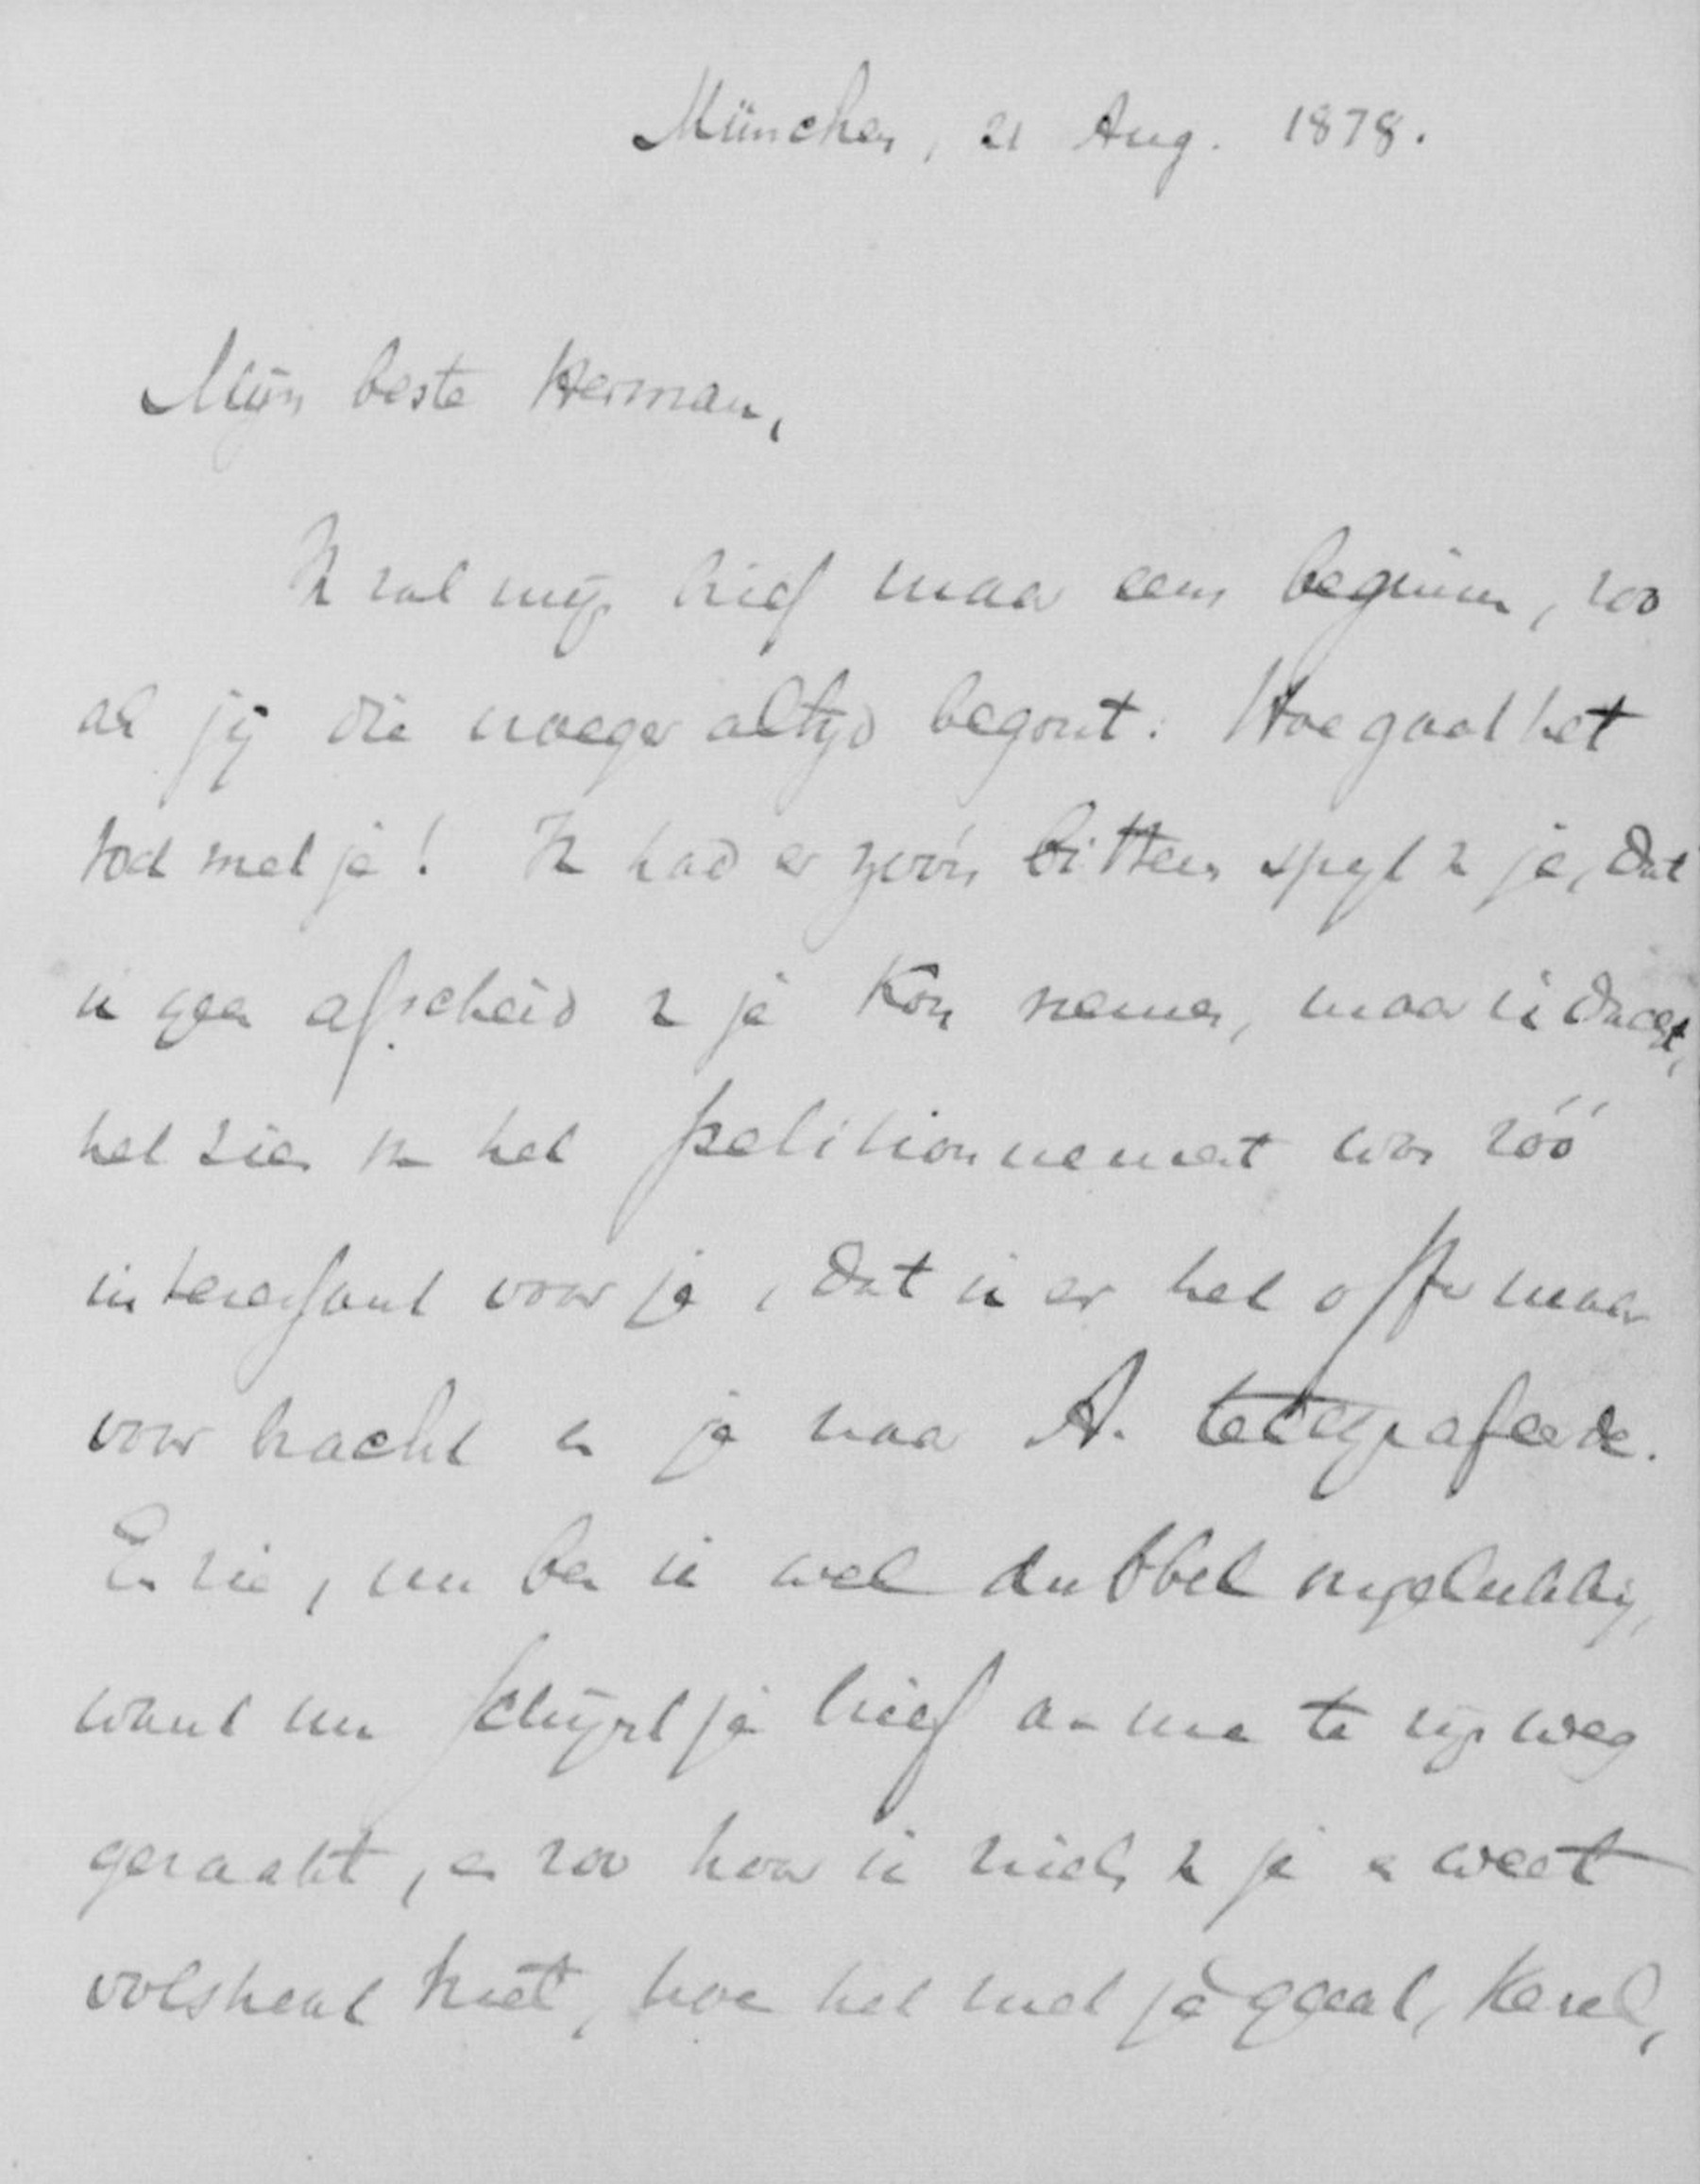 München, 21 Aug. 1878.
Mijn beste Herman,
Ik zal mijn brief maar eens beginnen, zoo
als jij die vroeger altijd begont: Hoe gaat het
toch met je! Ik had er zoo'n bitteren spijt v je, dat
ik geen afscheid v je kon nemen, maar ik dacht,
het zien v het petitionnement was zóó
interessant voor je, dat ik er het offer maar
voor bracht en je naar A. telegrafeerde.
En zie, nu ben ik wel dubbel ongelukkig,
want nu schijnt je brief aan me te zijn weg
geraakt, en zoo hoor ik niets v je en weet
volstrekt niet, hoe het met je gaat, kerel,